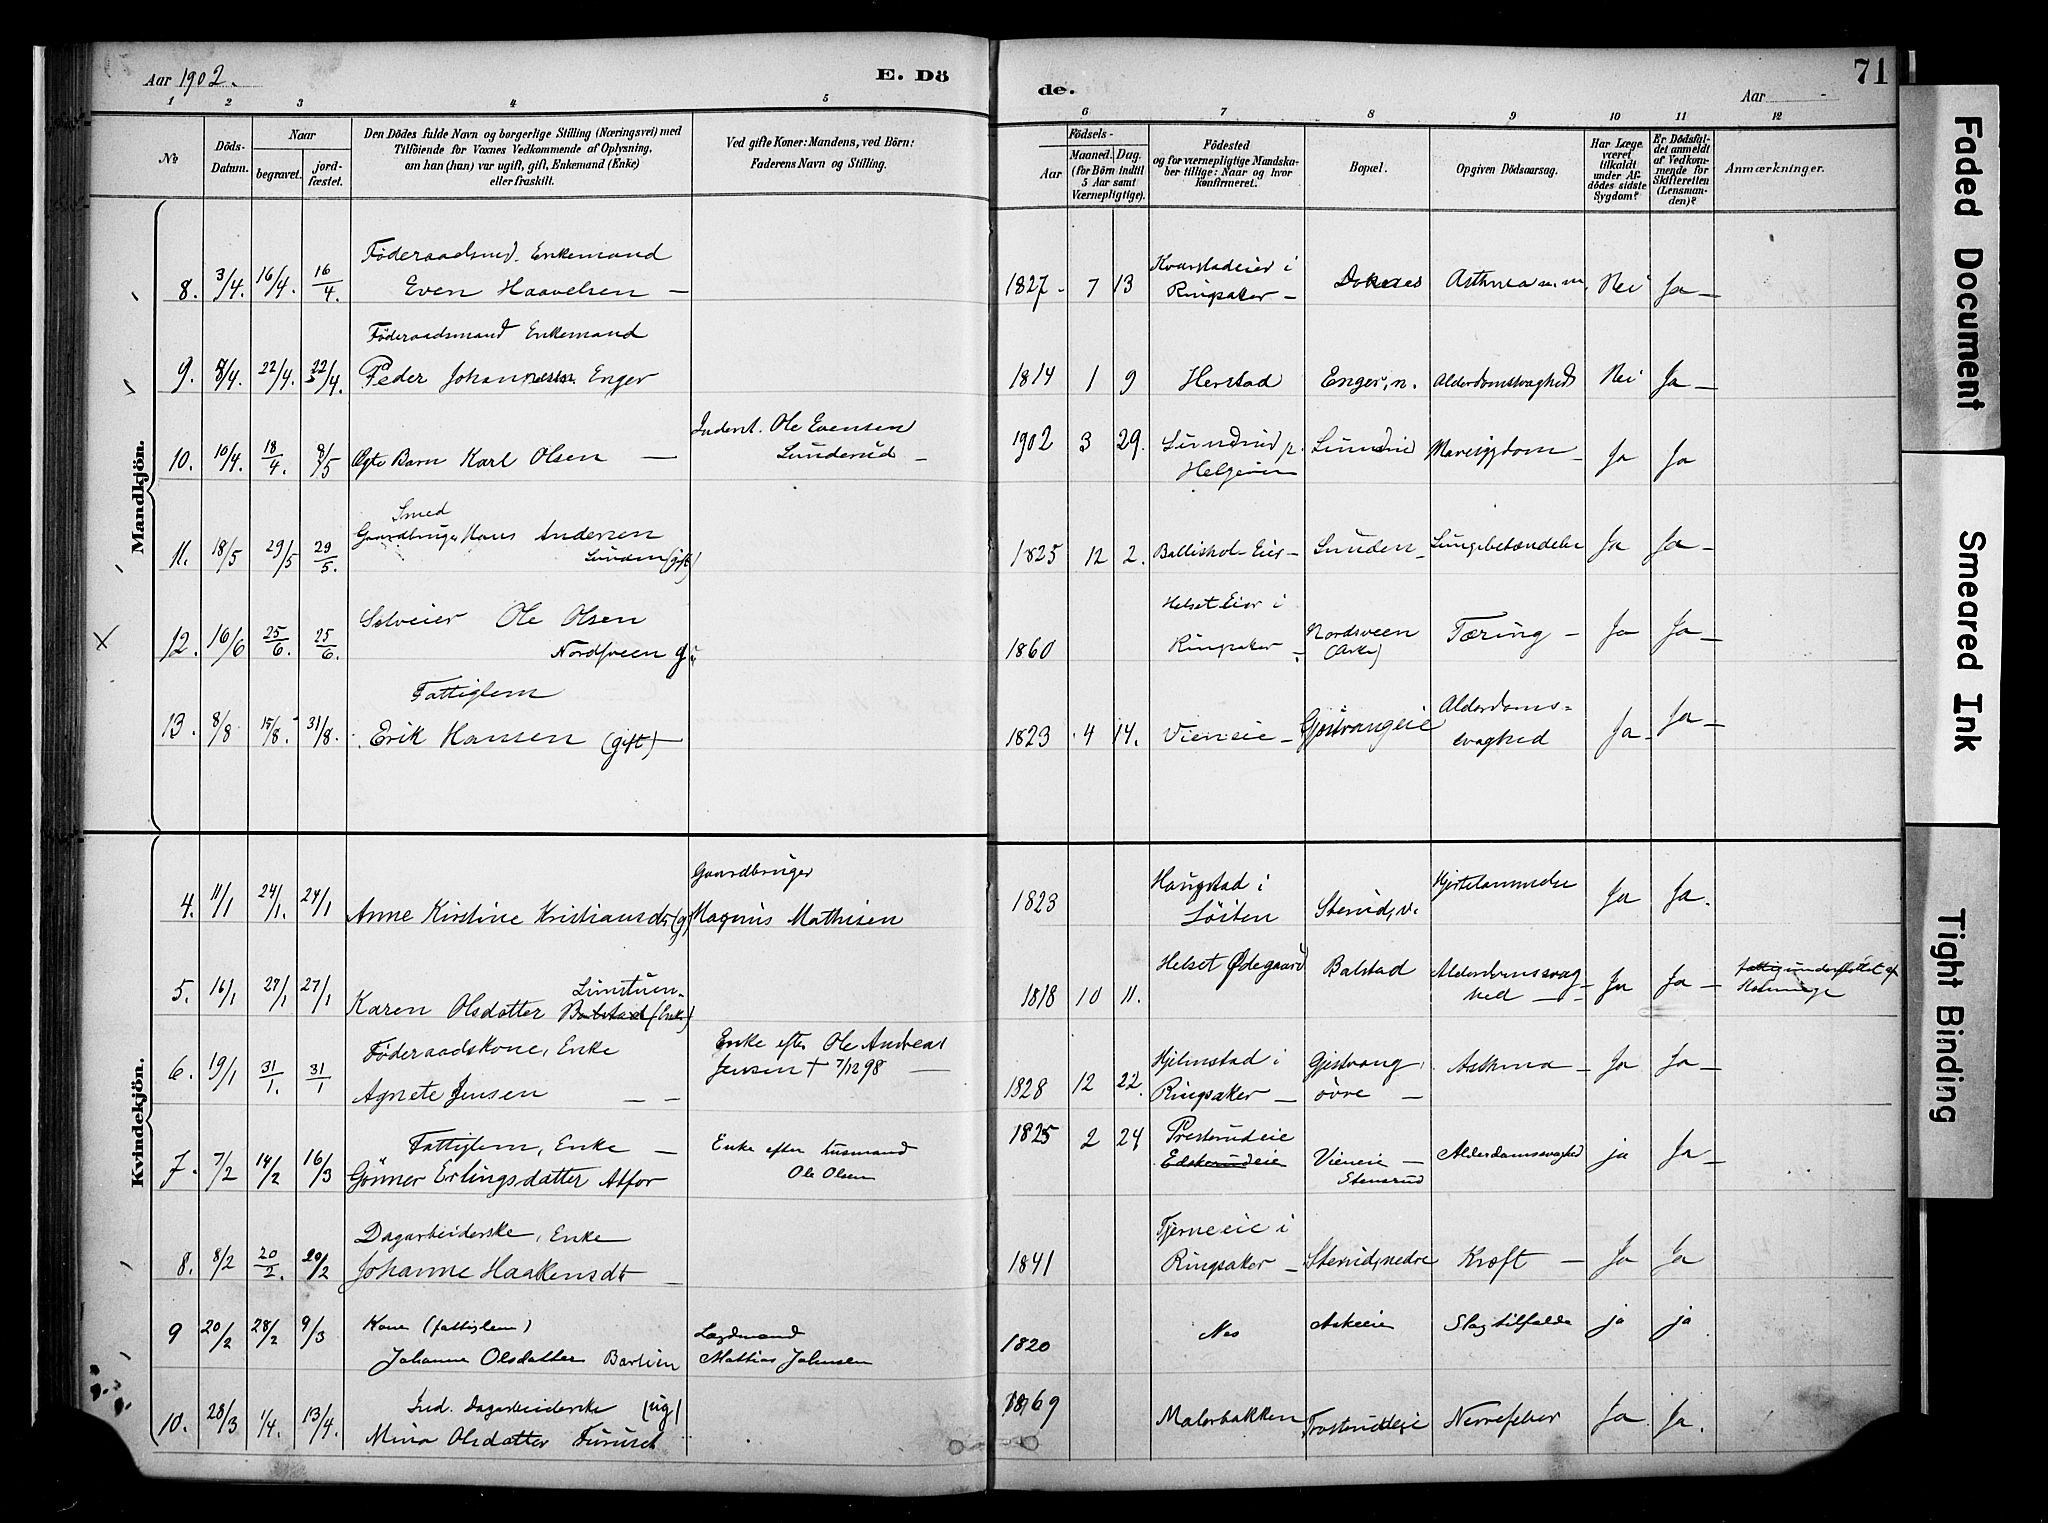 Aar 1902.
E. Dö
de.
Aar
71
1 2 3 4 5 6 7 8 9 10 11 12
No
Döds-Datum.
Naar
begravet.
jord-fæstet.
Den Dödes fulde Navn og borgerlige Stilling (Næringsvei) med
Tilföiende for Voxnes Vedkommende af Oplysning,
om han (hun) var ugift, gift, Enkemand (Enke)
eller fraskilt.
Ved gifte Koner: Mandens, ved Börn:
Faderens Navn og Stilling.
Födsels-
Aar
Maaned. Dag.
(for Börn indtil
5 Aar samt
Værnepligtige).
Födested
og for værnepligtige Mandska-
ber tillige: Naar og hvor
konfirmeret.
Bopæl.
Opgiven Dödsaarsag.
Har Læge
været
tilkaldt
under Af-
dödes sidste
Sygdom?
Er Dödsfal-
det anmeldt
af Vedkom-
mende for
Skifteretten
(Lensman-
den)?
Anmærkninger.
Mandkjön.
Föderaadsmd. Enkemand
8. 3/4. 16/4. 16/4. Even Haavelsen —
1827 - 7 13 Kvarstadeier i
Ringsaker — Asthma m.m. Nei Ja —
Föderaadsmand Enkemand
9. 8/4. 22/4. 22/4. Peder Johannessen Enger
1814 1 9 Herstad Enger, n. Alderdomssvaghed Nei Ja —
10. 10/4. 18/4. 8/5 Ægte Barn Karl Olsen —
Inderst. Ole Evensen
Lunderud —
1902 3 29. Lundrud p.
Helgeøen Lundrud Mavesygdom — Ja Ja
Smed
11. 18/5 29/5 29/5. Gaardbruger Hans Andersen
Lunden (gift)
1825 12 2. Ballishol Eier — Lunden — Lungebetændelse Ja Ja —
12. 16/6 25/6. 25/6. Selveier Ole Olsen
Nordsveen g.
1860 Helset Eier i
Ringsaker — Nordsveen
(Aske) Tæring — Ja Ja —
Fattiglem
13. 8/8 15/8. 31/8. Erik Hansen (gift) —
1823 4 14. Vienseie — Gjestvangeie Alderdoms=
svaghed Ja — Ja —
Kvindekjön.
4. 11/1 24/1. 24/1 Anne Kirstine Kristiansdt (g)
Gaardbruger
Magnus Mathisen
1823 Haugstad i
Löiten Sterud, v. Hjertelammelse Ja Ja.
5. 16/1 27/1 27/1 Karen Olsdatter Balstad (Enke)
Lunstuen.
1818 10 11. Helset Ødegaard Balstad Alderdomssvag-
hed — Ja Ja — fattigunderstöttet af
6. 19/1 31/1. 31/1 Föderaadskone, Enke
Agnete Jensen — —
Enke efter Ole Andreas
Jensen † 7/12 98 —
1828 12 22. Hjelmstad i
Ringsaker — Gjestvang,
övre — Asthma — Ja Ja —
7. 7/2 14/2 16/3 Fattiglem, Enke —
Gönner Erlingsdatter Atfor
Enke efter Husmand
Ole Olsen
1825 2 24 Presterudeie
Edskerudeie Vieneie —
Stensrud Alderdomssvaghed ja Ja —
8. 8/2 20/2. 20/2 Dagarbeiderske, Enke
Johanne Haakensdt —
1841 Tjerneeie i
Ringsaker — Sterud, nedre Kræft — Ja Ja
9 20/2 28/2 9/3 Kone (fattiglem)
Johanne Olsdatter Barlien
Lægdmand
Mathias Johnsen
1820 Nes Askeeie Slagtilfælde ja ja
10. 28/3 1/4. 13/4. Ind. Dagarbeiderske (ug)
Mina Olsdatter Furuset
1869 Malerbakken Trosterudeie Nervefeber Ja Ja.
Faded Document
Smeared Ink
Tight Binding